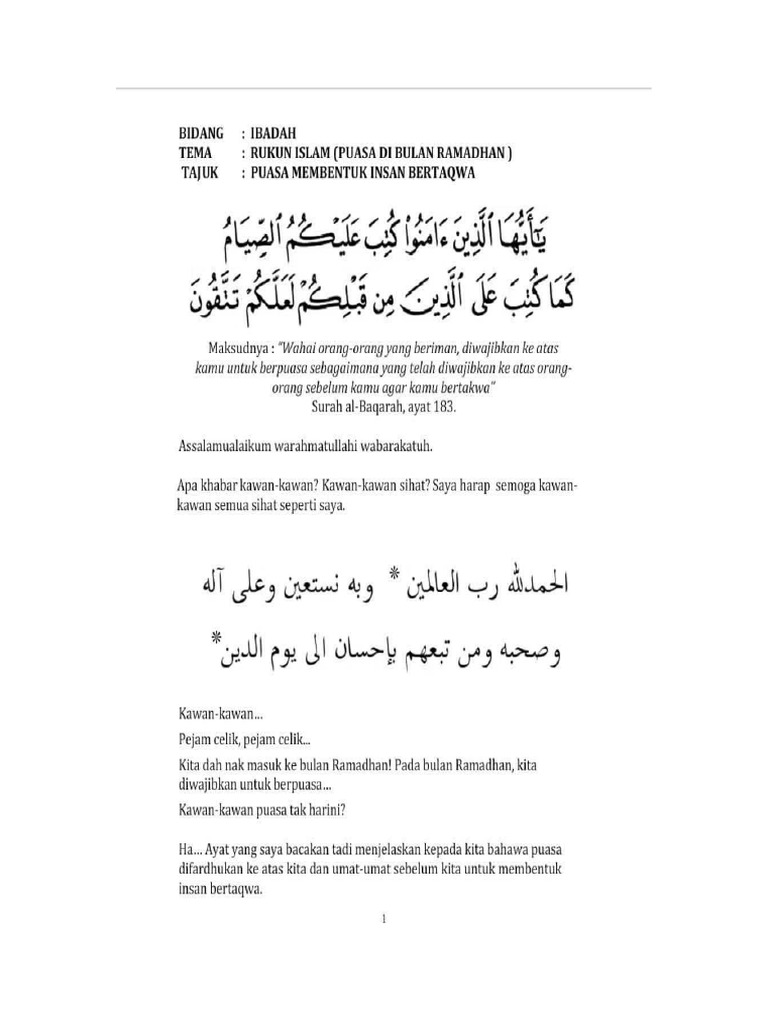 BIDANG : IBADAH
TEMA : RUKUN ISLAM (PUASA DI BULAN RAMADHAN )
TAJUK : PUASA MEMBENTUK INSAN BERTAQWA
يَـٰٓأَيُّهَا ٱلَّذِينَ ءَامَنُوا۟ كُتِبَ عَلَيْكُمُ ٱلصِّيَامُ
كَمَا كُتِبَ عَلَى ٱلَّذِينَ مِن قَبْلِكُمْ لَعَلَّكُمْ تَتَّقُونَ
Maksudnya : "Wahai orang-orang yang beriman, diwajibkan ke atas
kamu untuk berpuasa sebagaimana yang telah diwajibkan ke atas orang-
orang sebelum kamu agar kamu bertakwa"
Surah al-Baqarah, ayat 183.
Assalamualaikum warahmatullahi wabarakatuh.
Apa khabar kawan-kawan? Kawan-kawan sihat? Saya harap semoga kawan-
kawan semua sihat seperti saya.
الحمدلله رب العالمين * وبه نستعين وعلى آله
وصحبه ومن تبعهم بإحسان الى يوم الدين*
Kawan-kawan...
Pejam celik, pejam celik...
Kita dah nak masuk ke bulan Ramadhan! Pada bulan Ramadhan, kita
diwajibkan untuk berpuasa...
Kawan-kawan puasa tak harini?
Ha... Ayat yang saya bacakan tadi menjelaskan kepada kita bahawa puasa
difardhukan ke atas kita dan umat-umat sebelum kita untuk membentuk
insan bertaqwa.
1